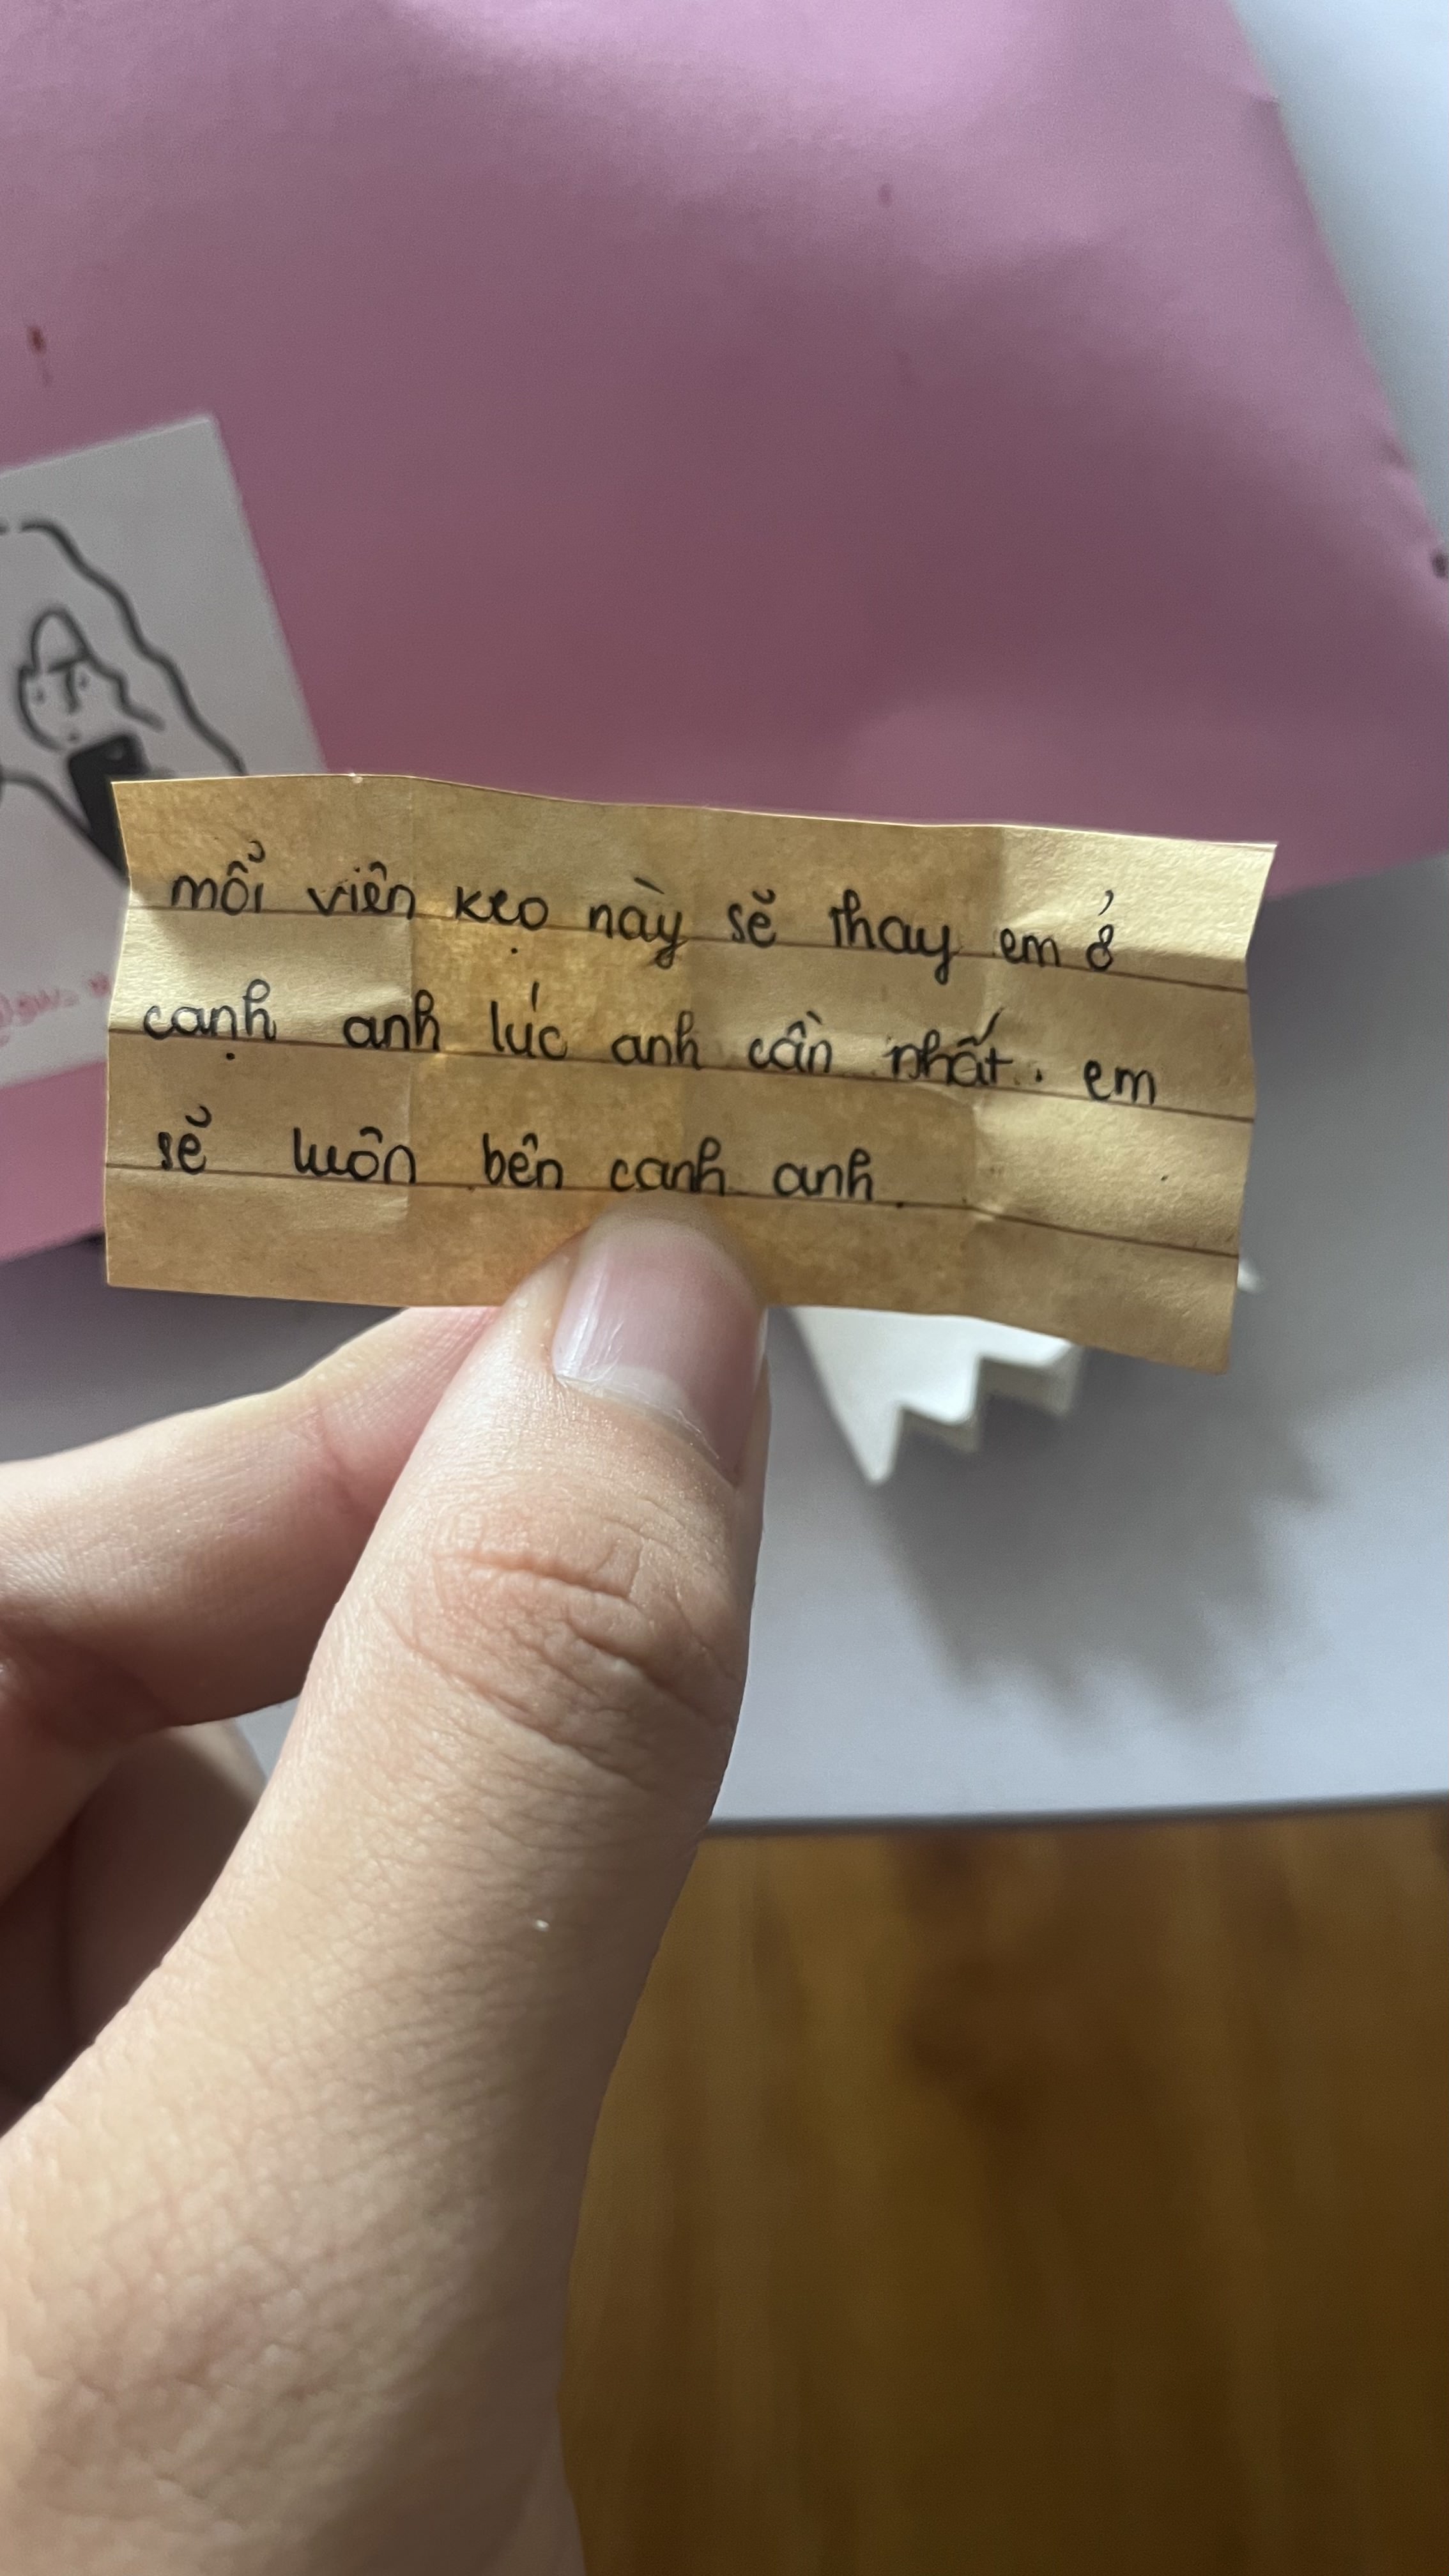 mỗi viên kẹo này sẽ thay em ở
cạnh anh lúc anh cần nhất. em
sẽ luôn bên cạnh anh.